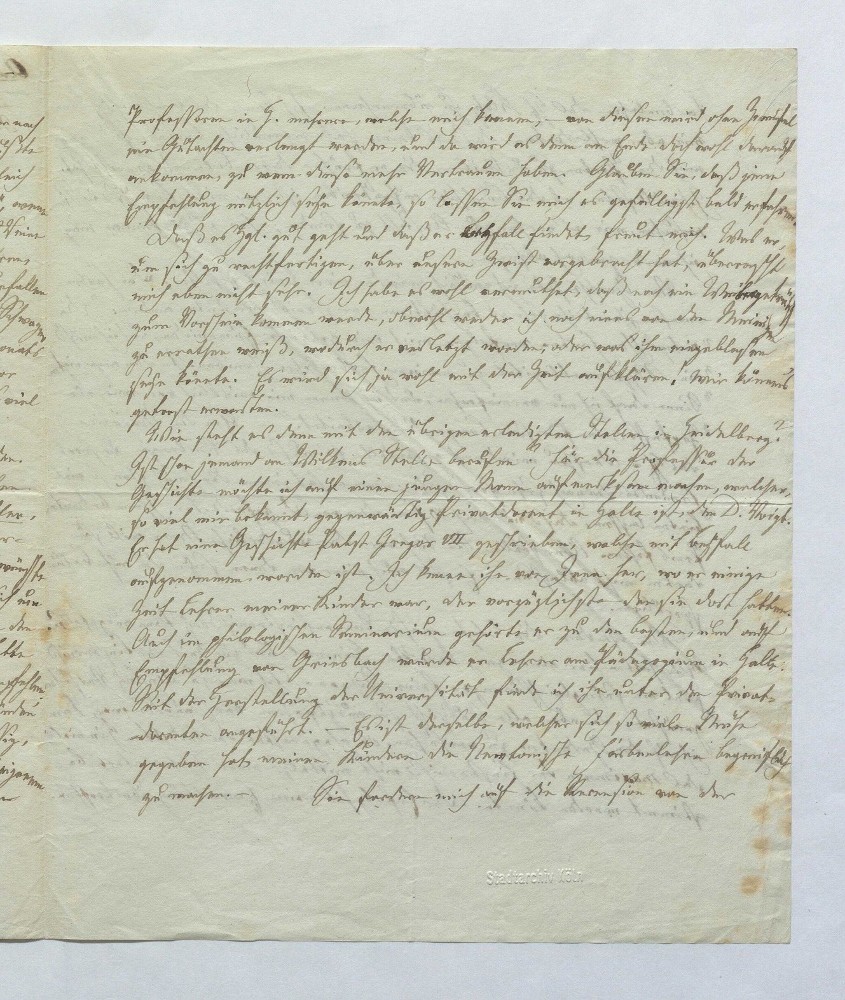 Professoren in H. mehrere, welche mich kennen, — von diesen wird ohne Zweifel
ein Gutachten verlangt werden, und da wird es denn am Ende doch wohl darauf
ankommen, zu wem diese mehr Vertrauen haben. Glauben Sie, daß jene
Empfehlung nützlich seyn könnte, so lassen Sie mich es gefälligst bald erfahren.
Daß es Hgl. gut geht und daß er Beyfall findet, freut mich. Was er,
um sich zu rechtfertigen, über unsern Zwist vorgebracht hat, überrascht
mich eben nicht sehr. Ich habe es wohl vermuthet, daß noch ein
zum Vorschein kommen werde, obwohl weder ich noch eines von den Meinigen
zu errathen weiß, wodurch er verletzt worden, oder was ihm eingeblasen
seyn könnte. Es wird sich ja wohl mit der Zeit aufklären! Wir können's
getrost erwarten.
Wie steht es denn mit den übrigen erledigten Stellen in Heidelberg?
Ist schon jemand an Wilkens Stelle berufen? Für die Professur der
Geschichte möchte ich auf einen jungen Mann aufmerksam machen, welcher,
so viel mir bekannt, gegenwärtig Privatdocent in Halle ist, den D. Voigt.
Er hat eine Geschichte Pabst Gregor VII geschrieben, welche mit Beyfall
aufgenommen worden ist. Ich kenne ihn von Jena her, wo er einige
Zeit Lehrer meiner Kinder war, der vorzüglichste den sie dort hatten.
Auch im philologischen Seminarium gehörte er zu den besten, und auf
Empfehlung von Griesbach wurde er Lehrer am Pädagogium in Halle.
Seit der Herstellung der Universität finde ich ihn unter den Privat-
docenten angeführt. — Es ist derselbe, welcher sich so viele Mühe
gegeben hat, meinen Kindern die Newtonische Farbenlehre begreiflich
zu machen. — Sie fordern mich auf die Recension von der
Stadtarchiv Köln